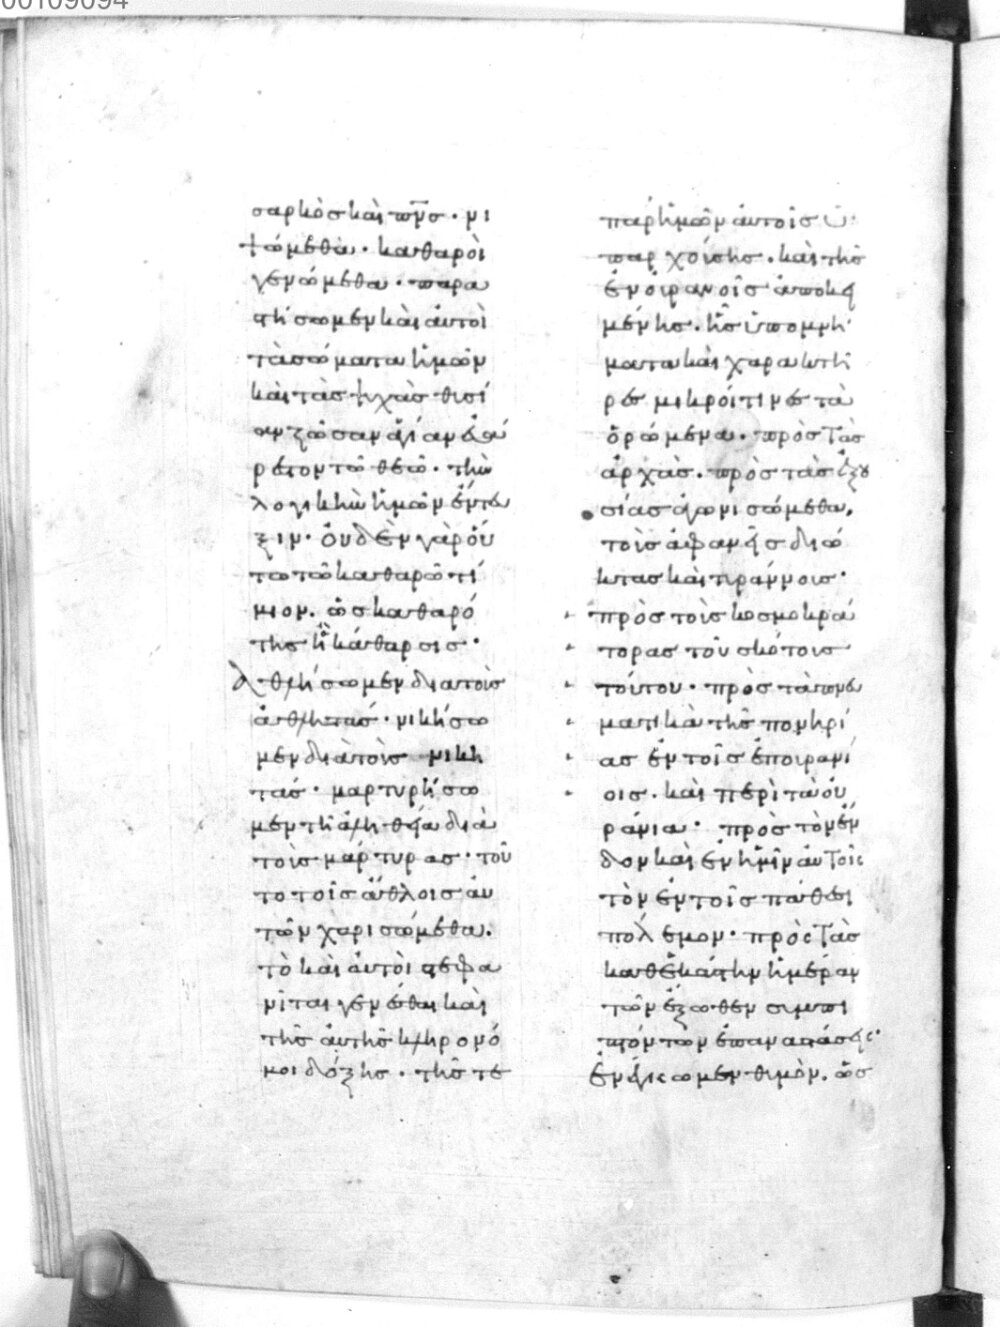 00109094
σαρκὸσ καὶ πν̅σ· νι
ψώμεθα· καθαροὶ
γενώμεθα· παρα
στήσωμεν καὶ αὐτοὶ
τὰ σώματα ἡμῶν
καὶ τὰσ ψυχὰσ θυσί
αν ζῶσαν ἁγίαν εὐά
ρεστον τῶ θεῶ· τὴν
λογικὴν ἡμῶν ἔντευ
ξιν· οὐδὲν γὰρ οὕ
τω τῶ καθαρῶ τί
μιον. ὡσ καθαρό
τησ ἢ κάθαρσισ·
ἀθλήσωμεν διὰ τοὺσ
ἀθλητάσ· νικήσω
μεν διὰ τοὺσ νικη
τάσ· μαρτυρήσω
μεν τῆ ἀληθεία διὰ
τοὺσ μάρτυρασ· τοῦ
το τοῖσ ἄθλοισ αὐ
τῶν χαρισώμεθα.
τὸ καὶ αὐτοὶ στεφα
νῖται γενέσθαι καὶ
τῆσ αὐτῆσ κληρονό
μοι δόξησ· τῆσ τε
παρ' ἡμῶν αὐτοῖσ ὑ
παρχούσησ. καὶ τῆσ
ἐν οὐρανοῖσ ἀποκει
μένησ. ἧσ ὑπομνή
ματα καὶ χαρακτῆ
ρεσ μικροί τινεσ τὰ
ὁρώμενα· πρὸσ τὰσ
ἀρχὰσ. πρὸσ τὰσ ἐξου
σίασ ἀγωνισώμεθα,
τοὺσ ἀφανεῖσ διώ
κτασ καὶ τυράννουσ·
πρὸσ τοὺσ κοσμοκρά
τορασ τοῦ σκότουσ
τούτου· πρὸσ τὰ πνευ
ματικὰ τῆσ πονηρί
ασ ἐν τοῖσ ἐπουρανί
οισ. καὶ περὶ τὰ οὐ
ράνια· πρὸσ τὸν ἔν
δον καὶ ἐν ἡμῖν αὐτοῖσ
τὸν ἐν τοῖσ πάθεσι
πόλεμον· πρὸσ τὰσ
καθ' ἑκάστην ἡμέραν
τῶν ἔξωθεν συμπι
πτόντων ἐπαναστάσεισ·
ἐνέγκωμεν θυμὸν. ὡσ